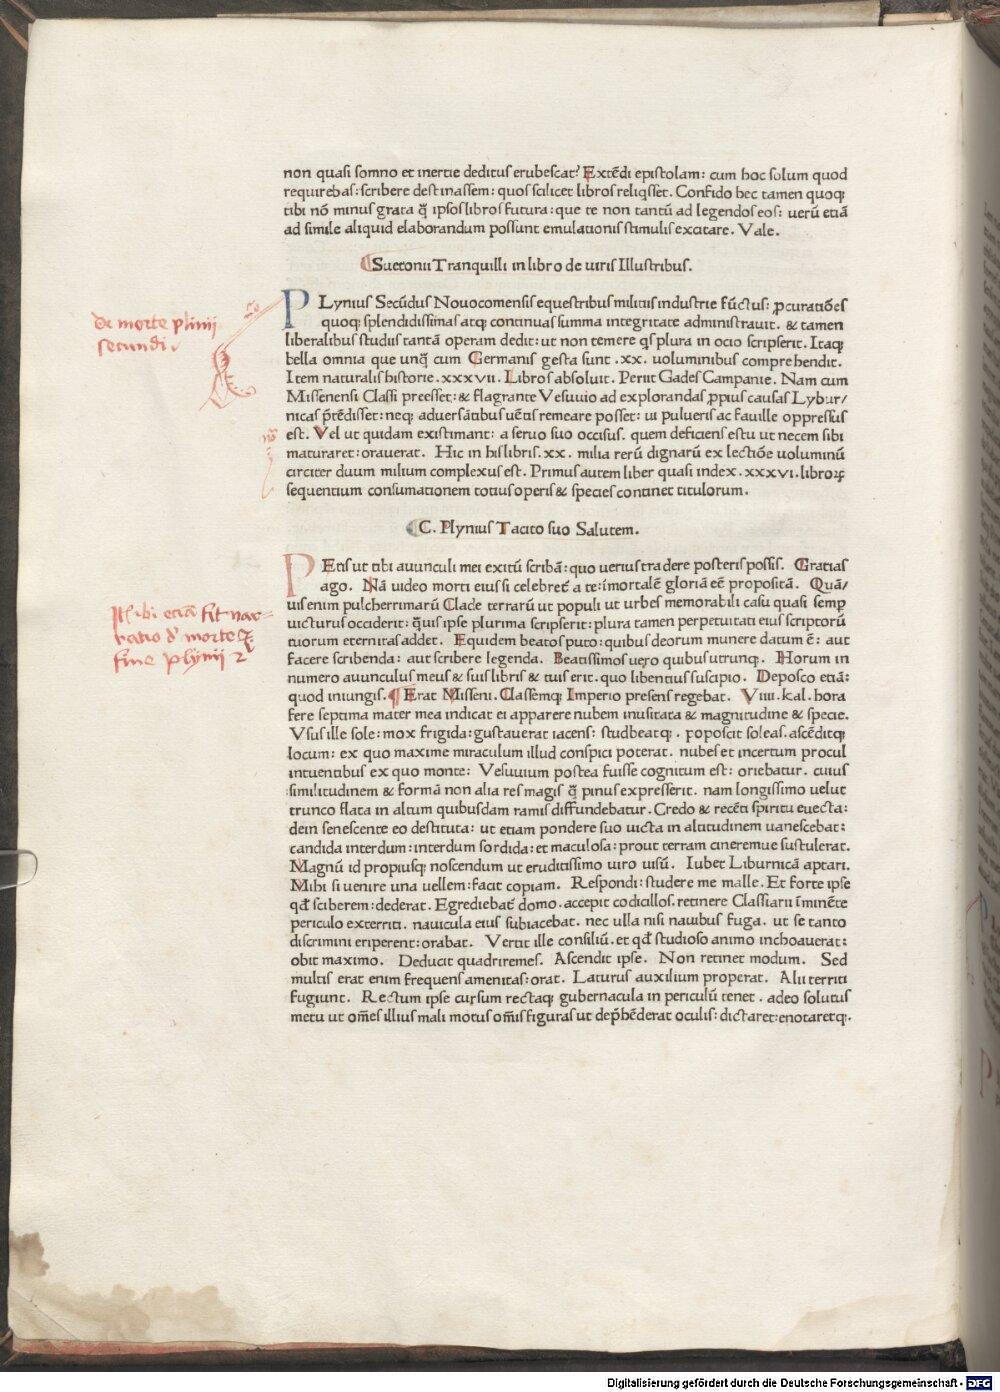 non quasi somno et inertie deditus erubescat? Extēdi epistolam: cum hoc solum quod
requirebas: scribere destinassem: quos scilicet libros reliqsset. Confido hec tamen quoq;
tibi nō minus grata q̄ ipsos libros futura: que te non tantū ad legendos eos: uerū etiā
ad simile aliquid elaborandum possunt emulationis stimulis excitare. Vale.
Suetonii Tranquilli in libro de uiris Illustribus.
PLynius Secūdus Nouocomensis equestribus militiis industrie fūctus: ꝓcuratiōes
quoq; splendidissimas atq; continuas summa integritate administrauit. & tamen
liberalibus studiis tantā operam dedit: ut non temere qs plura in ocio scripserit. Itaq;
bella omnia que unq̄ cum Germanis gesta sunt .xx. uoluminibus comprehendit.
Item naturalis historie .xxxvii. Libros absoluit. Periit Gades Campanie. Nam cum
Missenensi Classi preesset: & flagrante Vesuuio ad explorandas ꝓpius causas Lybur/
nicas p̄tēdisset: neq; aduersātibus uētis remeare posset: ui pulueris ac fauille oppressus
est. Vel ut quidam existimant: a seruo suo occisus. quem deficiens estu ut necem sibi
maturaret: orauerat. Hic in his libris .xx. milia rerū dignarū ex lectiōe uoluminū
circiter duum milium complexus est. Primus autem liber quasi index .xxxvi. libroꝝ
sequentium consumationem totius operis & species continet titulorum.
C. Plynius Tacito suo Salutem.
PEtis ut tibi auunculi mei exitū scribā: quo uerius tradere posteris possis. Gratias
ago. Nā uideo morti eius si celebret᷑ a te: īmortalē gloriā eē propositā. Quā/
uis enim pulcherrimarū Clade terrarū ut populi ut urbes memorabili casu quasi semp
uicturus occiderit: q̄uis ipse plurima scripserit: plura tamen perpetuitati eius scriptorū
tuorum eternitas addet. Equidem beatos puto: quibus deorum munere datum ē: aut
facere scribenda: aut scribere legenda. Beatissimos uero quibus utrunq;. Horum in
numero auunculus meus & suis libris & tuis erit. quo libentius suscipio. Deposco etiā:
quod iniungis. ¶ Erat Misseni. Classemq; Imperio presens regebat. Viiii. kal. hora
fere septima mater mea indicat ei apparere nubem inusitata & magnitudine & specie.
Vsus ille sole: mox frigida: gustauerat iacens: studbeatq;. poposcit soleas. ascēditq;
locum: ex quo maxime miraculum illud conspici poterat. nubes et incertum procul
intuentibus ex quo monte: Vesuuium postea fuisse cognitum est: oriebatur. cuius
similitudinem & formā non alia res magis q̄ pinus expresserit. nam longissimo uelut
trunco flata in altum quibusdam ramis diffundebatur. Credo & recēti spiritu euecta:
dein senescente eo destituta: ut etiam pondere suo uicta in altitudinem uanescebat:
candida interdum: interdum sordida: et maculosa: prout terram cineremue sustulerat.
Magnū id propiusq; noscendum ut eruditissimo uiro uisū. Iubet Liburnicā aptari.
Mihi si uenire una uellem: facit copiam. Respondi: studere me malle. Et forte ipse
qđ sciberem: dederat. Egrediebat᷑ domo. accepit codicillos. retinere Classiarii īminēte
periculo exterriti. nauicula eius subiacebat. nec ulla nisi nauibus fuga. ut se tanto
discrimini eriperent: orabat. Vertit ille consiliū. et qđ studioso animo inchoauerat:
obit maximo. Deducit quadriremes. Ascendit ipse. Non retinet modum. Sed
multis erat enim frequens amenitas: orat. Laturus auxilium properat. Alii territi
fugiunt. Rectum ipse cursum rectaq; gubernacula in periculū tenet. adeo solutus
metu ut om̄es illius mali motus om̄is figuras ut dep̄hēderat oculis: dictaret: enotaretq;.
de morte plinij
secundi
Digitalisierung gefördert durch die Deutsche Forschungsgemeinschaft - DFG